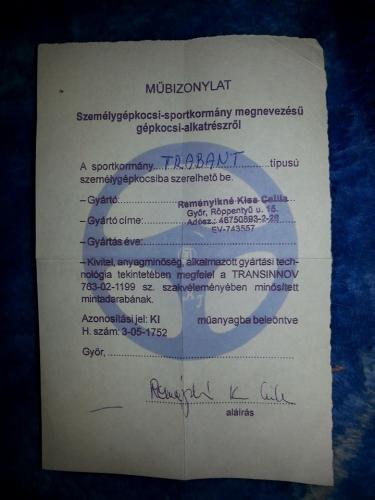 MŰBIZONYLAT
Személygépkocsi-sportkormány megnevezésű
gépkocsi-alkatrészről
A sportkormány TRABANT típusú
személygépkocsiba szerelhető be.
– Gyártó: Reményikné Kiss Csilla
Győr, Röppentyű u. 15.
– Gyártó címe: Adósz.: 46750893-2-28
EV-743557
– Gyártás éve:
– Kivitel, anyagminőség, alkalmazott gyártási tech-
nológia tekintetében megfelel a TRANSINNOV
763-02-1199 sz. szakvéleményében minősített
mintadarabának.
Azonosítási jel: KI műanyagba beleöntve
H. szám: 3-05-1752
Győr,
aláírás